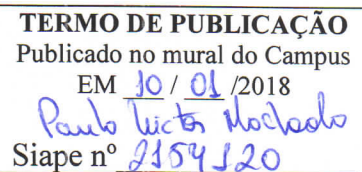 TERMO DE PUBLICAÇÃO
Publicado no mural do Campus
EM 10 / 01 /2018
Paulo Victor Machado
Siape nº 2154120